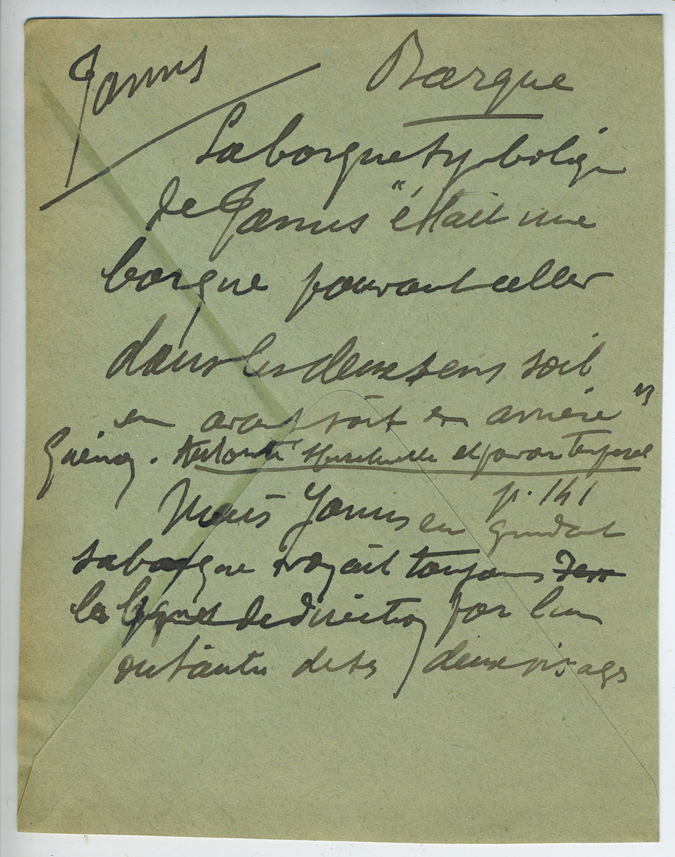 Janus Barque
La barque symboliq
de Janus "était une
barque pouvant aller
dans les deux sens soit
en avant soit en arrière"
Guénon. Autorité spirituelle et pouvoir temporel
p. 141
Mais Janus en guidant
sa barque voyait toujours
la ligne de direction par l'un
ou l'autre de ses deux visages